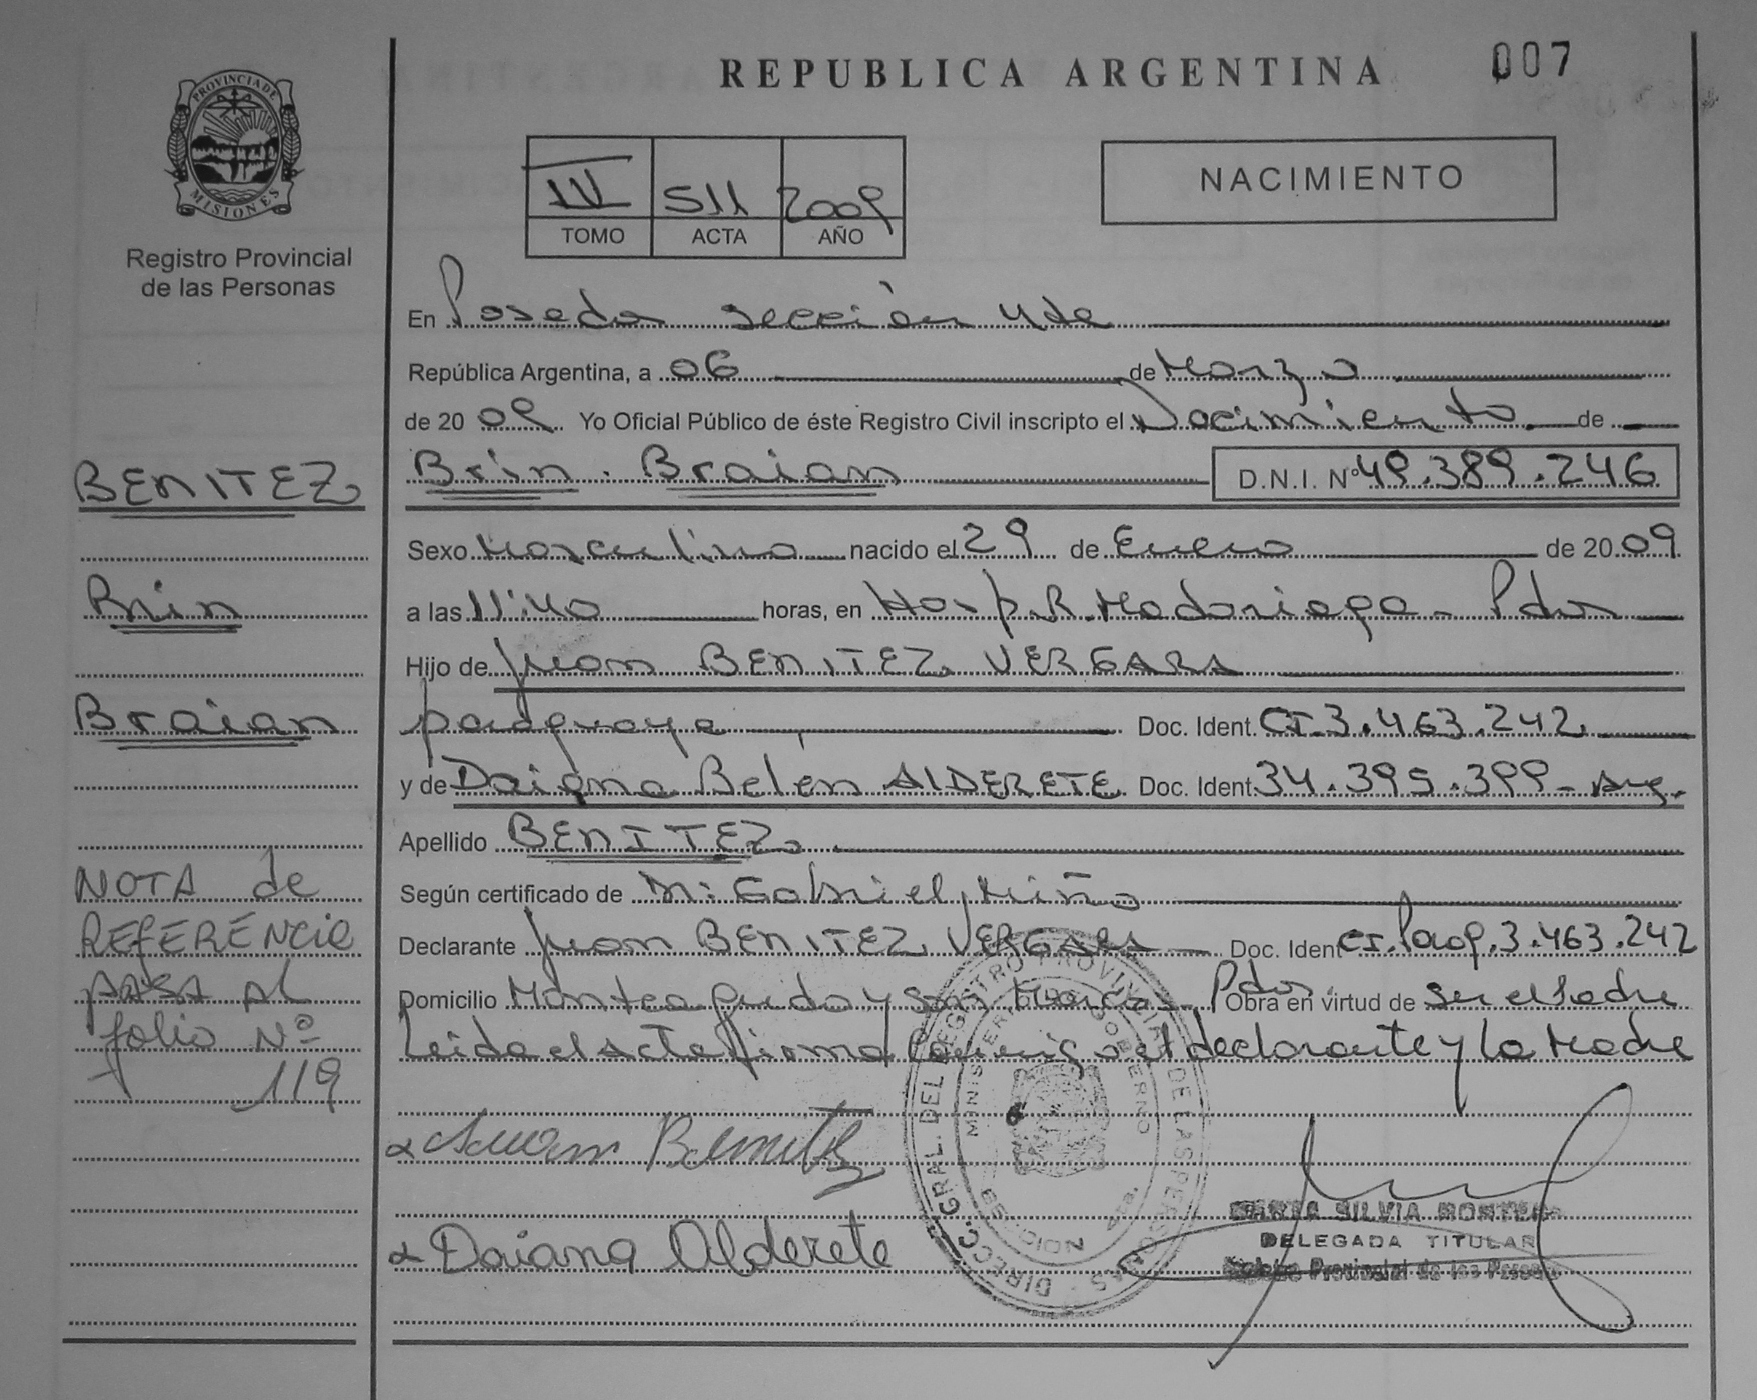 REPUBLICA ARGENTINA
007
PROVINCIA DE
MISIONES
Registro Provincial
de las Personas
IV 511 2009
TOMO ACTA AÑO
NACIMIENTO
En Posadas sección 4ta
República Argentina, a 06 de Marzo
de 2009 Yo Oficial Público de éste Registro Civil inscripto el Nacimiento de
Brin Braian D.N.I. Nº 49.389.246
Sexo Masculino nacido el 29 de Enero de 2009
a las 11:40 horas, en Hosp. R. Madariaga - Pdas
Hijo de Juan BENITEZ VERGARA
paraguaya Doc. Ident. CI. 3.463.242
y de Daiana Belén ALDERETE Doc. Ident. 34.395.399 - Arg.
Apellido BENITEZ
Según certificado de Dr. Gabriel Miño
Declarante Juan BENITEZ VERGARA Doc. Ident CI. Parag. 3.463.242
Domicilio Monteagudo y San Marcos - Pdas. Obra en virtud de ser el Padre
Leida el Acta firma Conmigo el declarante y la Madre
Juan Benitez
Daiana Alderete
DELEGADA TITULAR
Registro Provincial de las Personas
BENITEZ
Brin
Braian
NOTA de
REFERENCIA
PASA AL
folio Nº
119